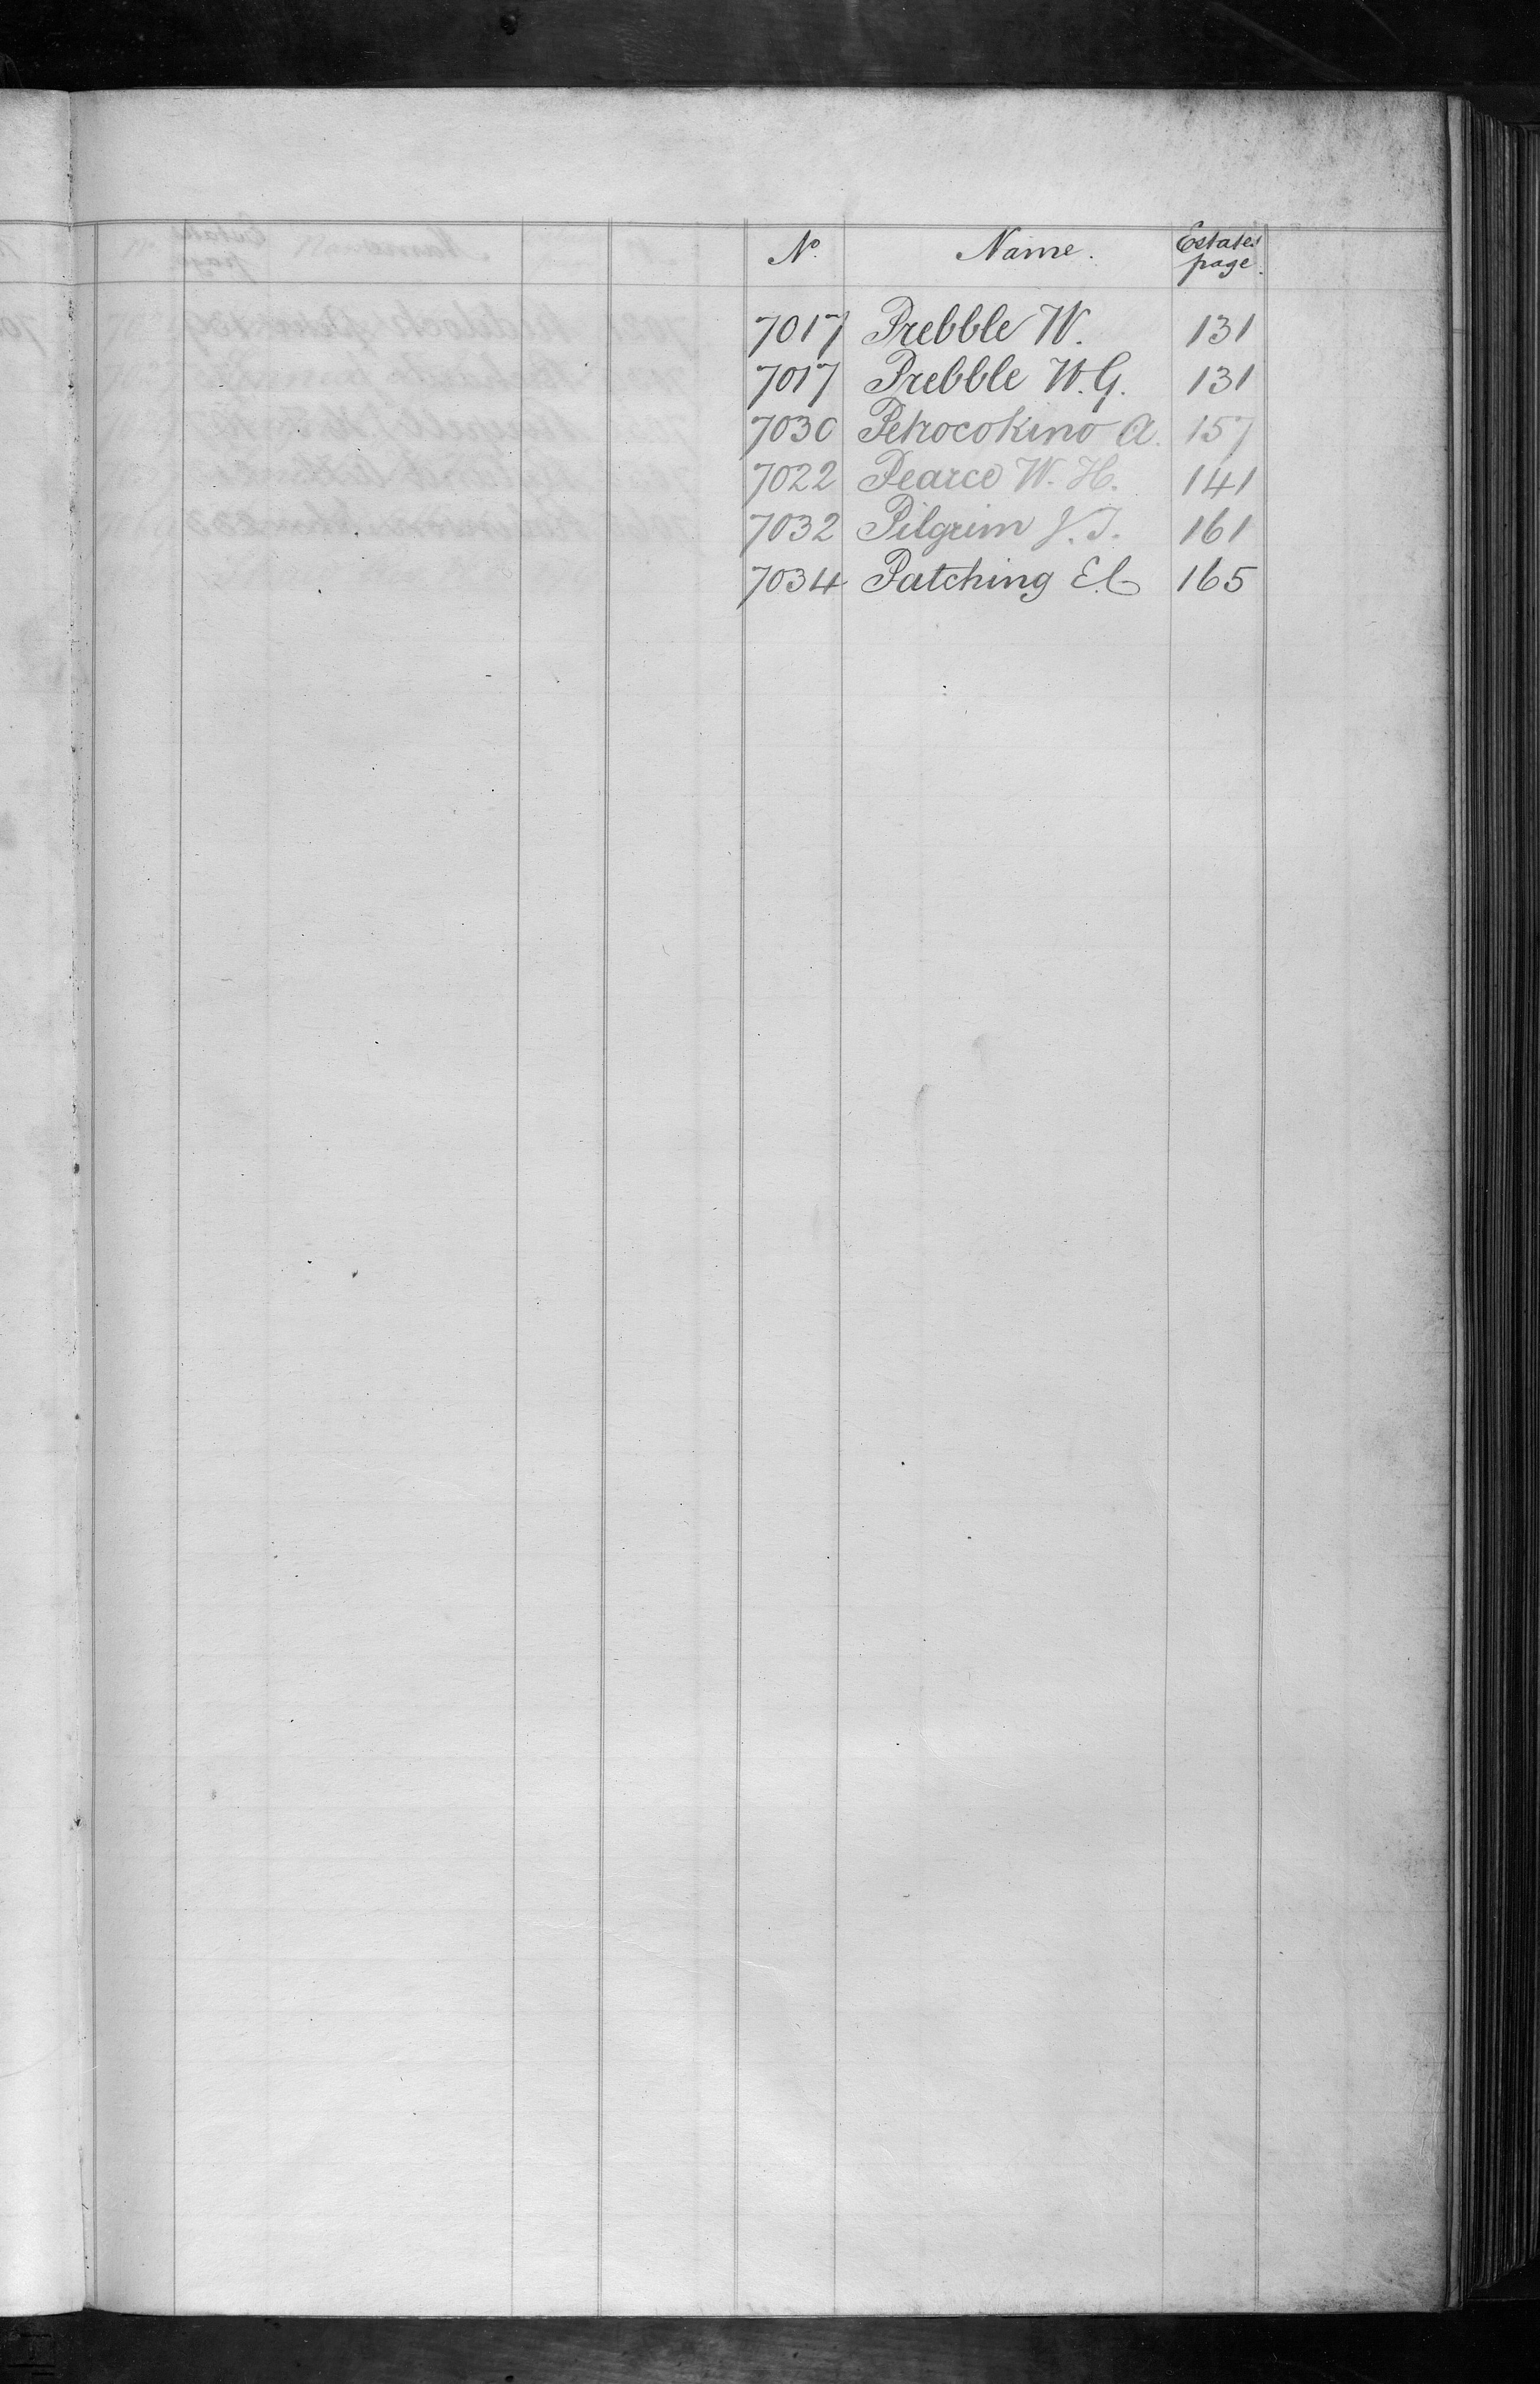 No. Name. Estates page.
7017 Prebble W. 131
7017 Prebble W.G. 131
7030 Petrocokino A. 157
7022 Pearce W.H. 141
7032 Pilgrim J.T. 161
7034 Patching E.C 165